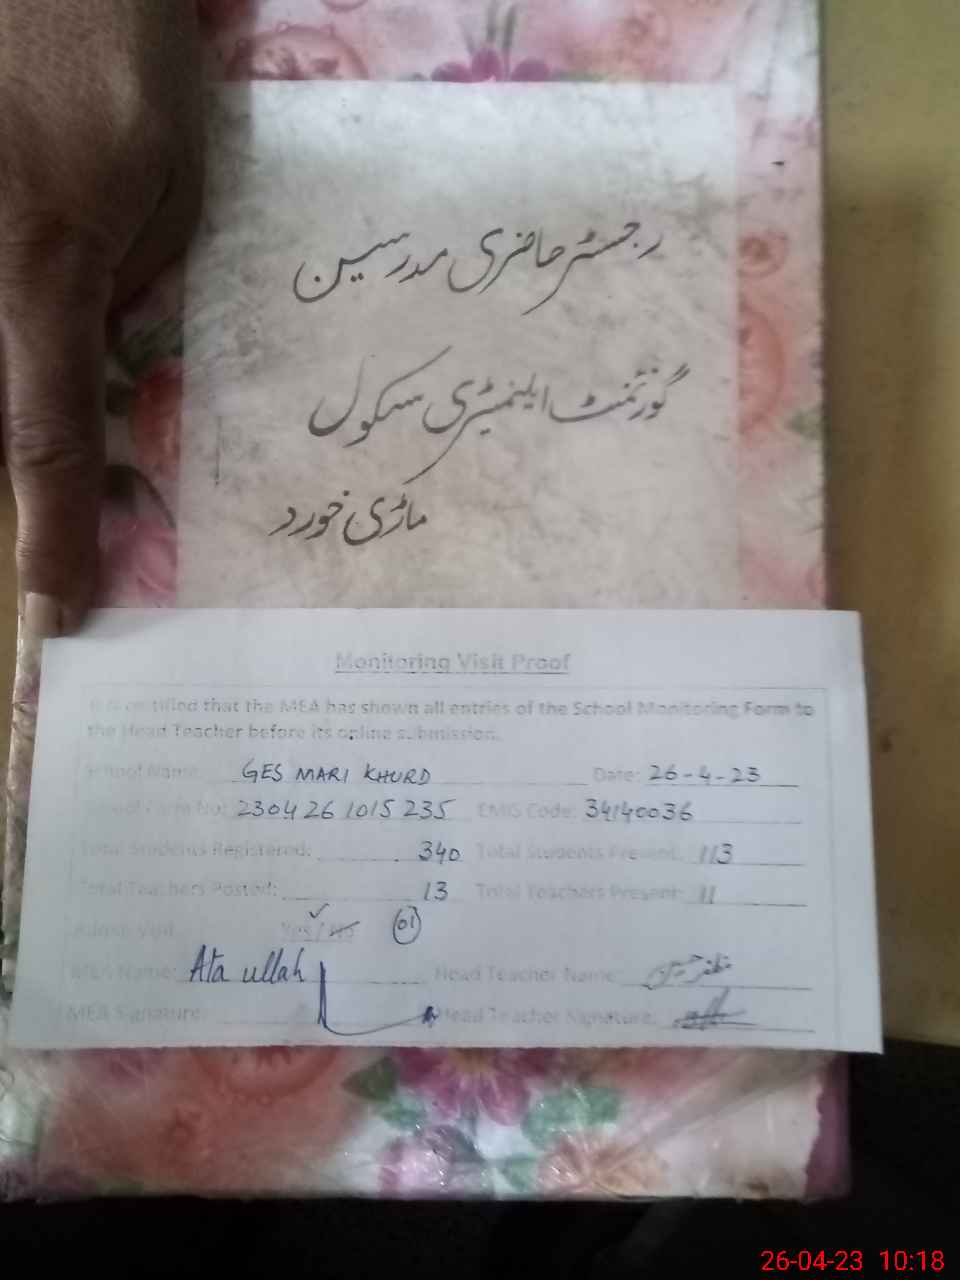 رجسٹر حاضری مدرسین
گورنمنٹ ایلیمنٹری سکول
ماڑی خورد
Monitoring Visit Proof
It is certified that the MEA has shown all entries of the School Monitoring Form to
the Head Teacher before its online submission.
School Name: GES MARI KHURD Date: 26-4-23
School Form No: 230426 1015 235 EMIS Code: 34140036
Total Students Registered: 340 Total Students Present: 113
Total Teachers Posted: 13 Total Teachers Present: 11
Visit Yes / No 01
MEA Name: Ata ullah Head Teacher Name
MEA Signature: Head Teacher Signature:
26-04-23 10:18